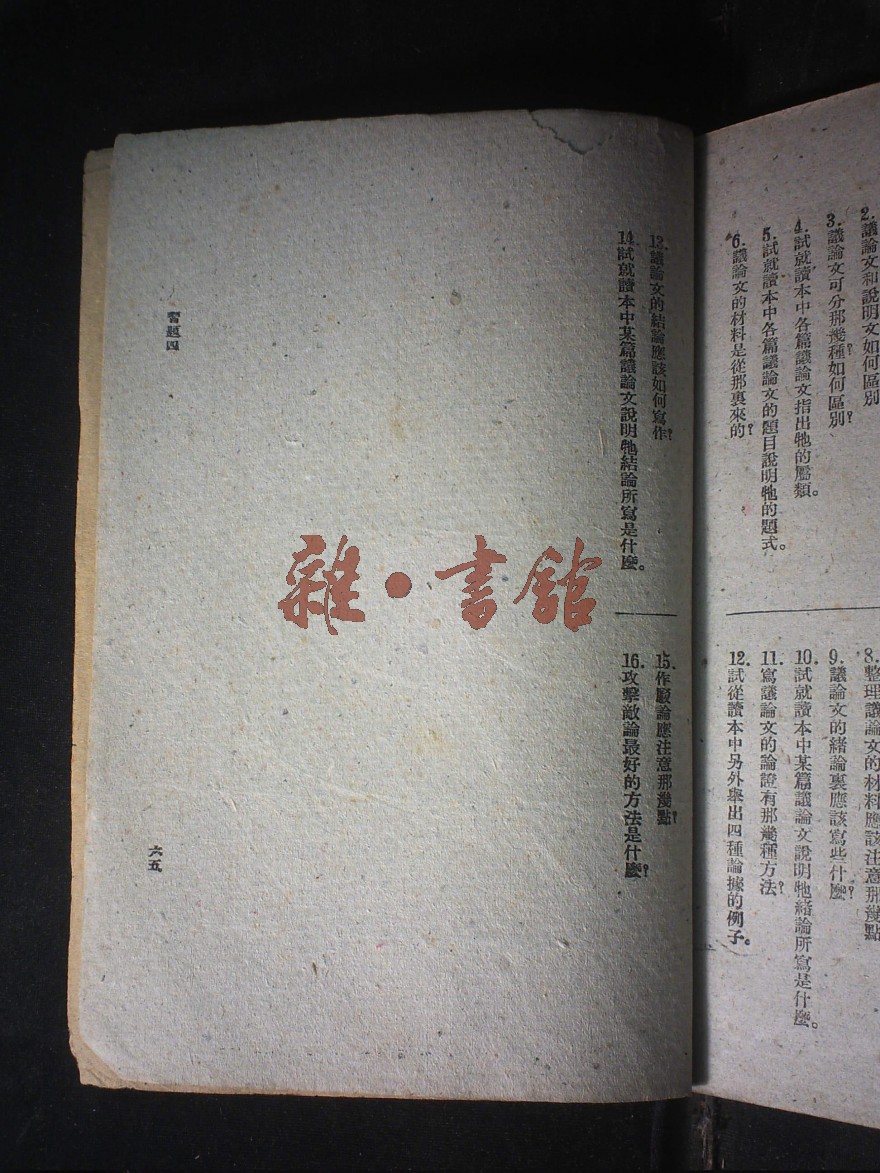 2.議論文和說明文如何區別
3.議論文可分那幾種如何區別?
4.試就讀本中各篇議論文指出牠的屬類。
5.試就讀本中各篇議論文的題目說明牠的題式。
6.議論文的材料是從那裏來的?
8.整理議論文的材料應該注意那幾點
9.議論文的緒論裏應該寫些什麼?
10.試就讀本中某篇議論文說明牠緒論所寫是什麼。
11.寫議論文的論證有那幾種方法?
12.試從讀本中另外舉出四種論據的例子。
13.議論文的結論應該如何寫作?
14.試就讀本中某篇議論文說明牠結論所寫是什麼。
15.作駁論應注意那幾點?
16.攻擊敵論最好的方法是什麼?
習題四
六五
雜·書館